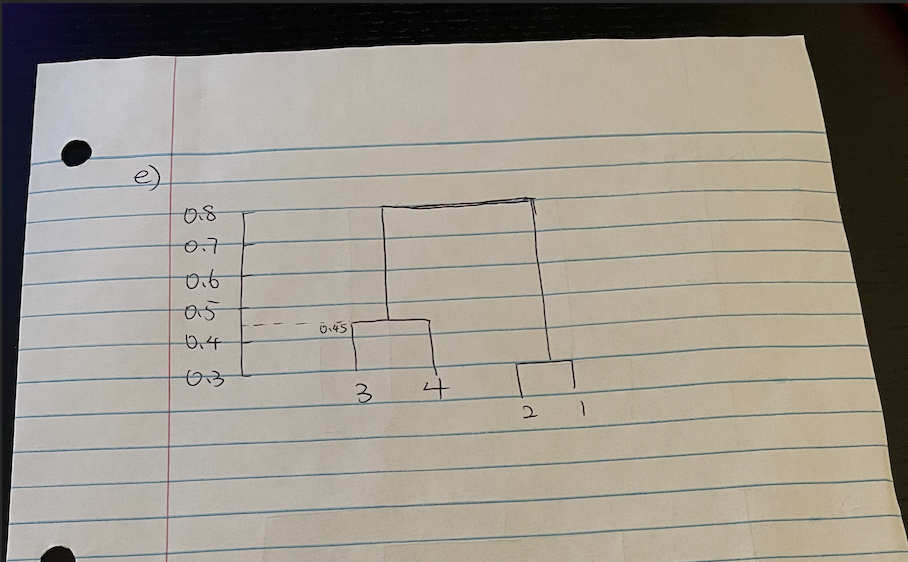 e)
0.8
0.7
0.6
0.5
0.45
0.4
0.3
3 4
2 1